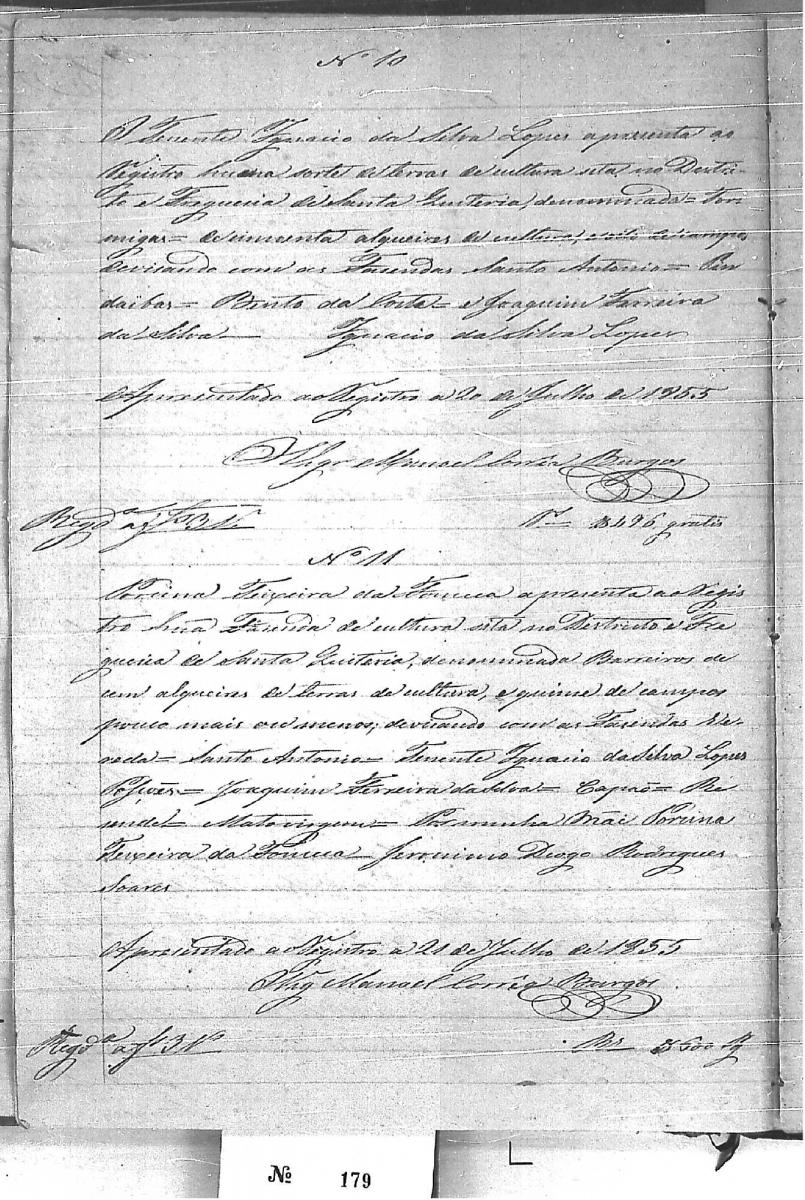 Nº 10
O Tenente Ignacio da Silva Lopes apresenta ao
Registro huma sorte de terras de cultura sita no Destri-
to e Freguesia de Santa Quiteria, denominada = For
migas = de sincoenta alqueires de cultura, e oito de campos
devisando com as Fazendas Santo Antonio = Pin
daibas = Bento da Costa = e Joaquim Ferreira
da Silva — Ignacio da Silva Lopes
Apresentado ao Registro a 20 de Julho de 1855
Manoel Corrêa Burgos
Regdº a fls 3 Vº $496 gratis
Nº 11
Porcina Teixeira da Fonseca apresenta ao Regis
tro huã Fazenda de cultura sita no Destricto e Fre
guesia de Santa Quiteria, denominada Barreiros de
cem alqueires de terras de cultura, e quinse de campos
pouco mais ou menos, devisando com as Fazendas Ve-
reda = Santo Antonio = Tenente Ignacio da Silva Lopes
Posções = Joaquim Ferreira da Silva = Capão = Re
sende = Mato virgem = Por minha Mãi Porcina
Teixeira da Fonseca Jeronimo Diogo Rodrigues
Soares
Apresentado ao Registro a 21 de Julho de 1855
Manoel Corrêa Burgos
Regdº a fl 3 Vº Rs $600
Nº 179